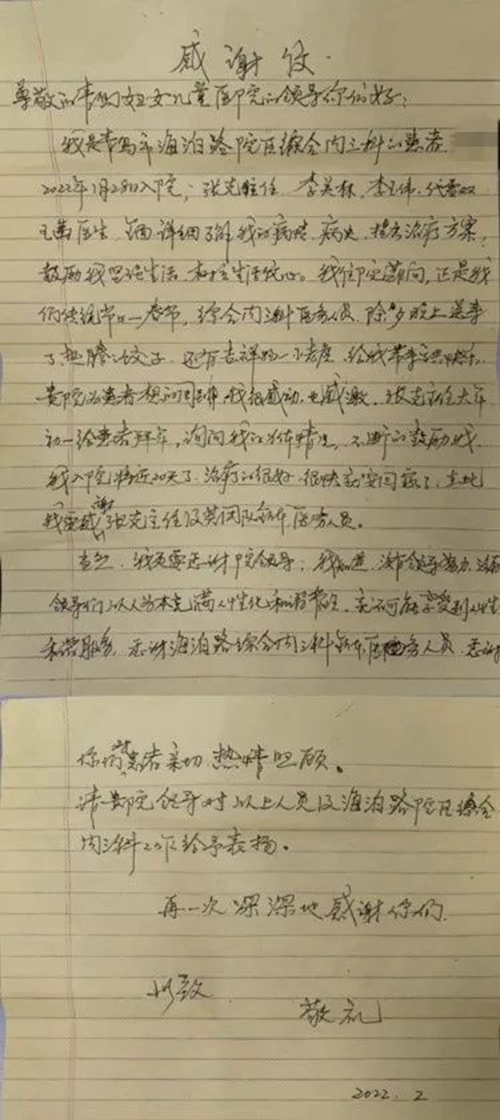 感谢信
尊敬的青岛妇女儿童医院的领导你们好：
我是青岛市海泊路院区综合内三科的患者
2022年1月28日入院，张克主任、李美林、李玉伟、代
王 医生、全面详细了解我的病情、病史、提出治疗方案，
鼓励我 生活和 生活信心。我住院期间，正是我
们传统节日—春节，综合内三科医务人员，除夕晚上送来
了热腾的饺子，还有吉祥的小老虎，给我带来 快乐
贵院为患者想的周到，我很感动也感激。张克主任大年
初一给患者拜年，询问我的身体情况，不断的鼓励我，
我入院将近20天了，治疗的很好，很快就要回家了，在此
我要感谢张克主任及其团队全体医务人员。
当然，我更要感谢院领导，我知道，没有领导努力，没有
领导们以人为本充满人性化和谐 ，就不可能享受到人性
和谐服务，感谢海泊路综合内三科全体医务人员，感谢
你们对患者亲切、热情照顾。
请贵院领导对以上人员及海泊路院区综合
内三科工作给予表扬。
再一次深深地感谢你们
此致
敬礼
2022.2